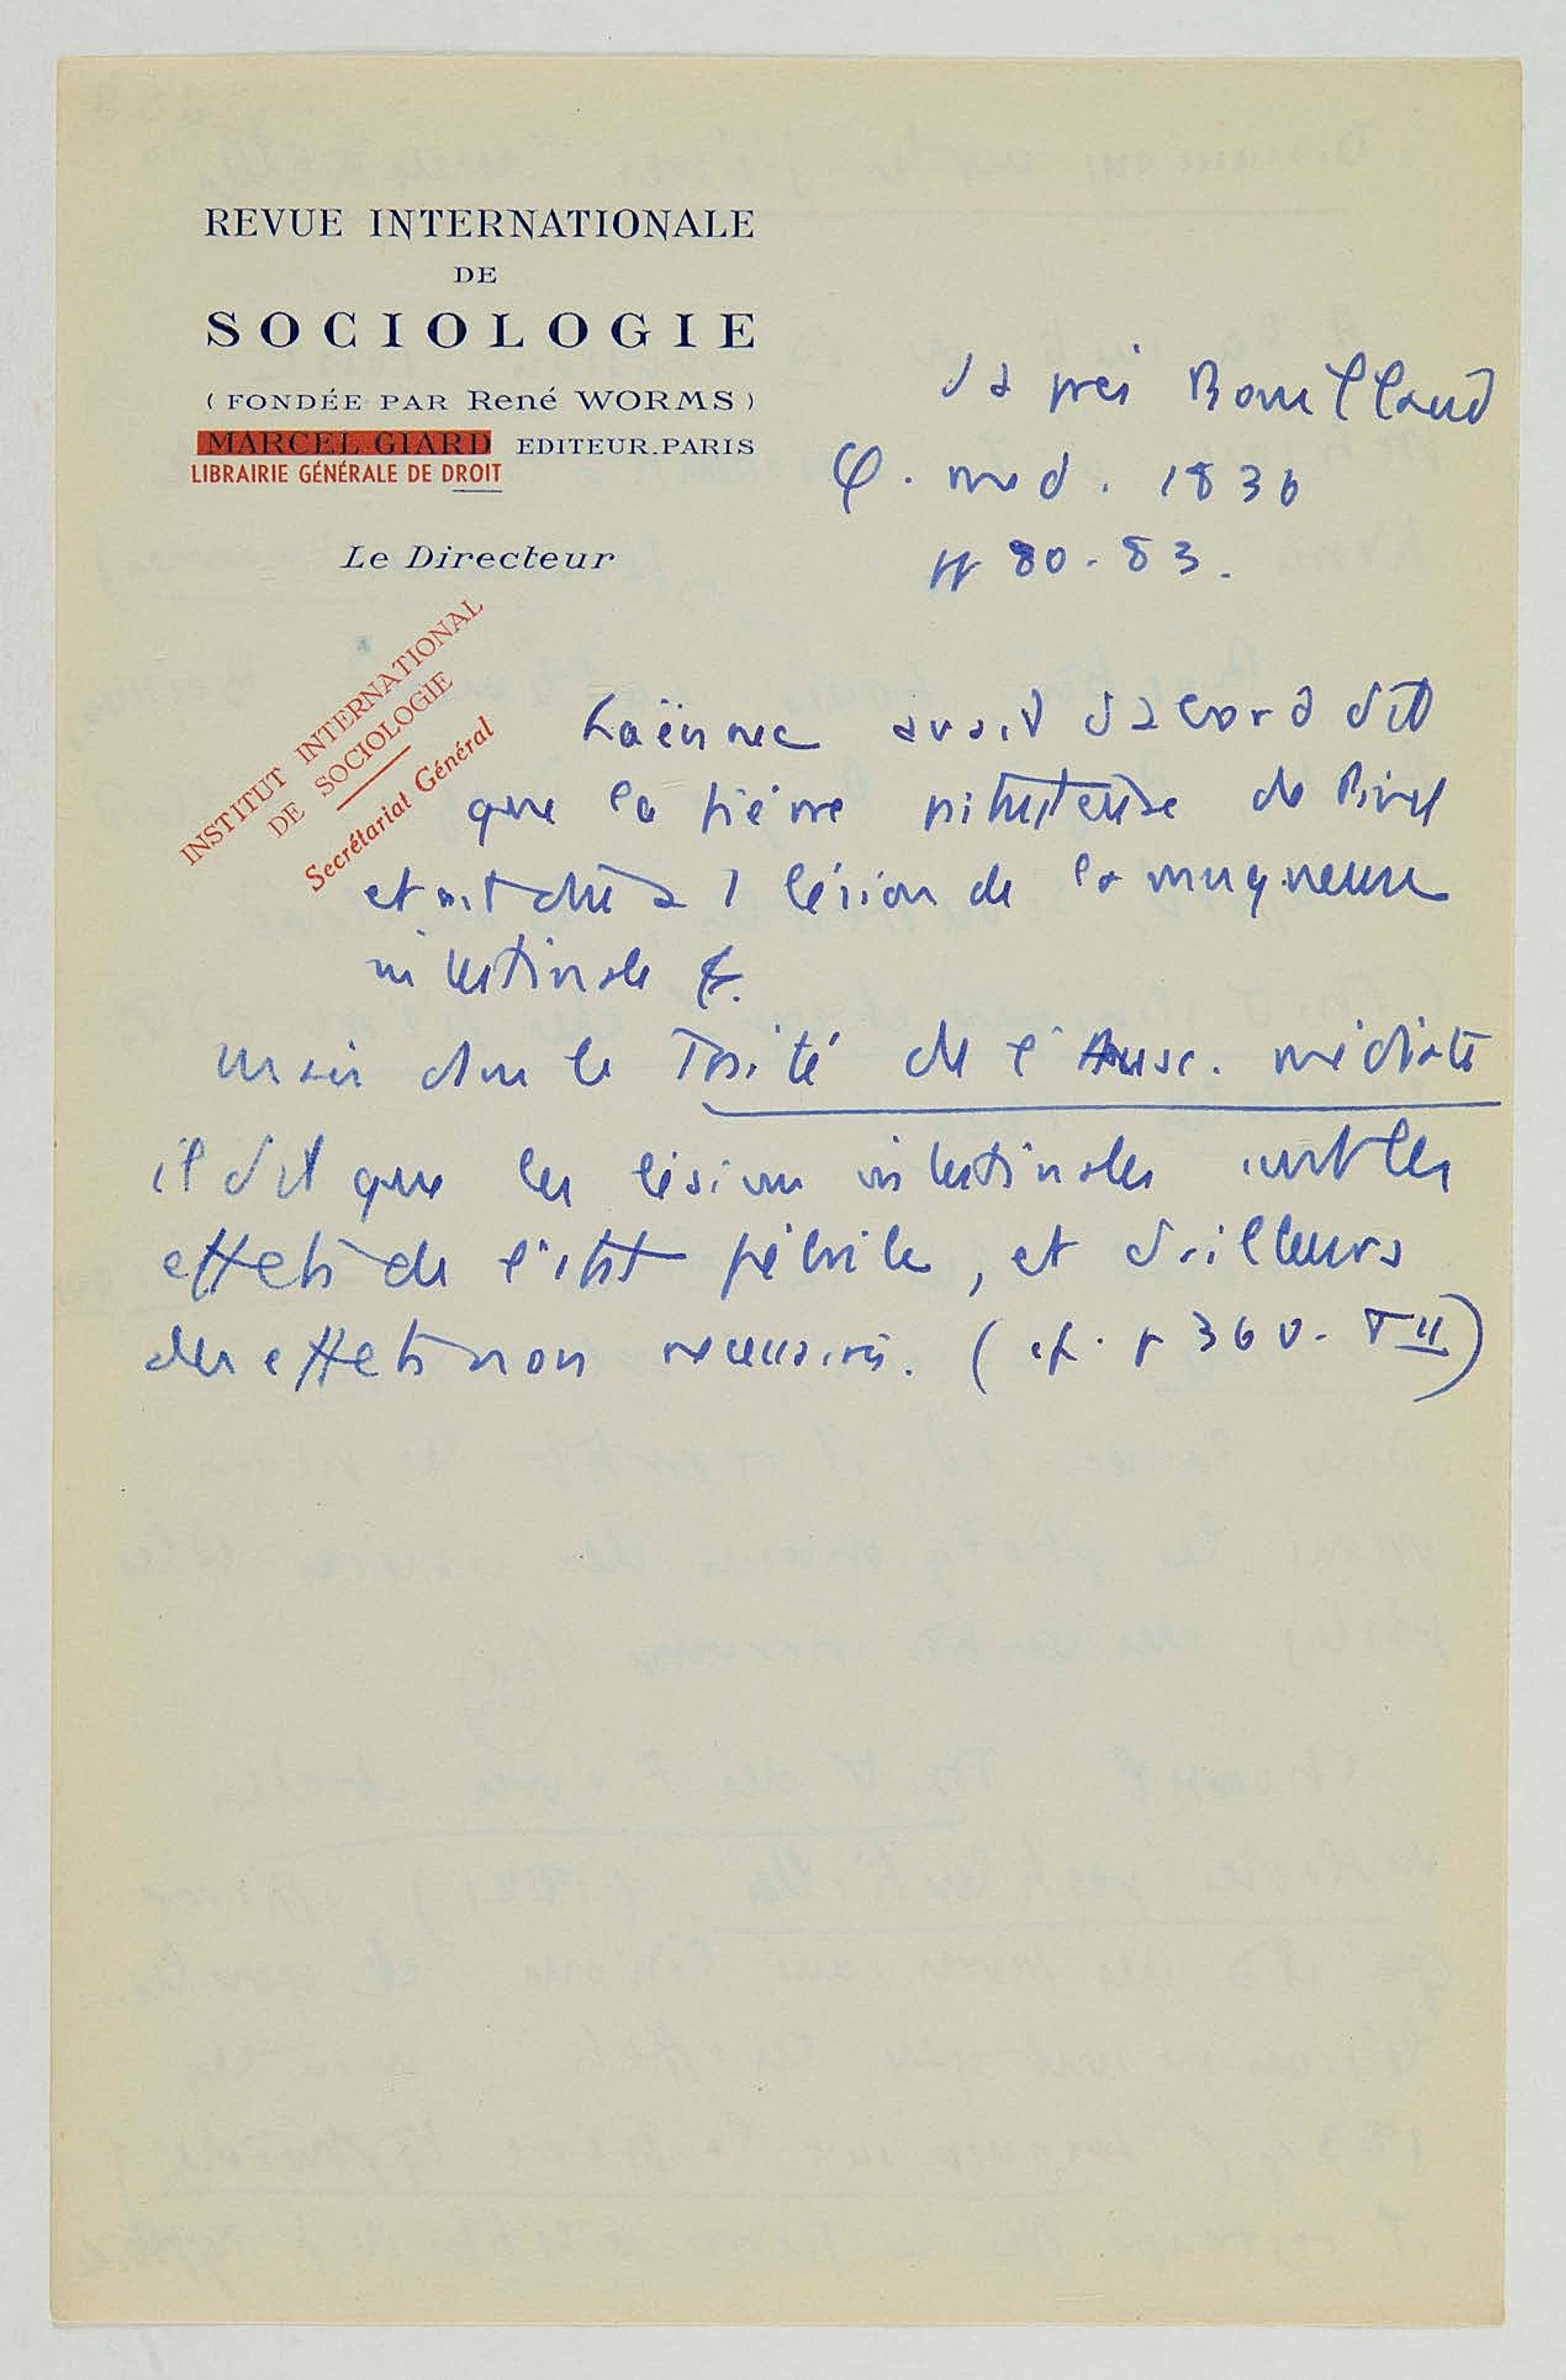 REVUE INTERNATIONALE
DE
SOCIOLOGIE
(FONDÉE PAR René WORMS)
MARCEL GIARD EDITEUR.PARIS
LIBRAIRIE GÉNÉRALE DE DROIT
Le Directeur
INSTITUT INTERNATIONAL
DE SOCIOLOGIE
Secrétariat Général
d'après Bouillaud
φ. med. 1836
pp 80-83.
Laënnec avait d'abord dit
que la fièvre pituiteuse de Pinel
etait due à 1 lésion de la muqueuse
intestinale &.
mais dans le Traité de l'Ausc. médiate
il dit que les lésions intestinales sont les
effets de l'état fébrile, et d'ailleurs
des effets non necessaires. (cf. p 360. T II)